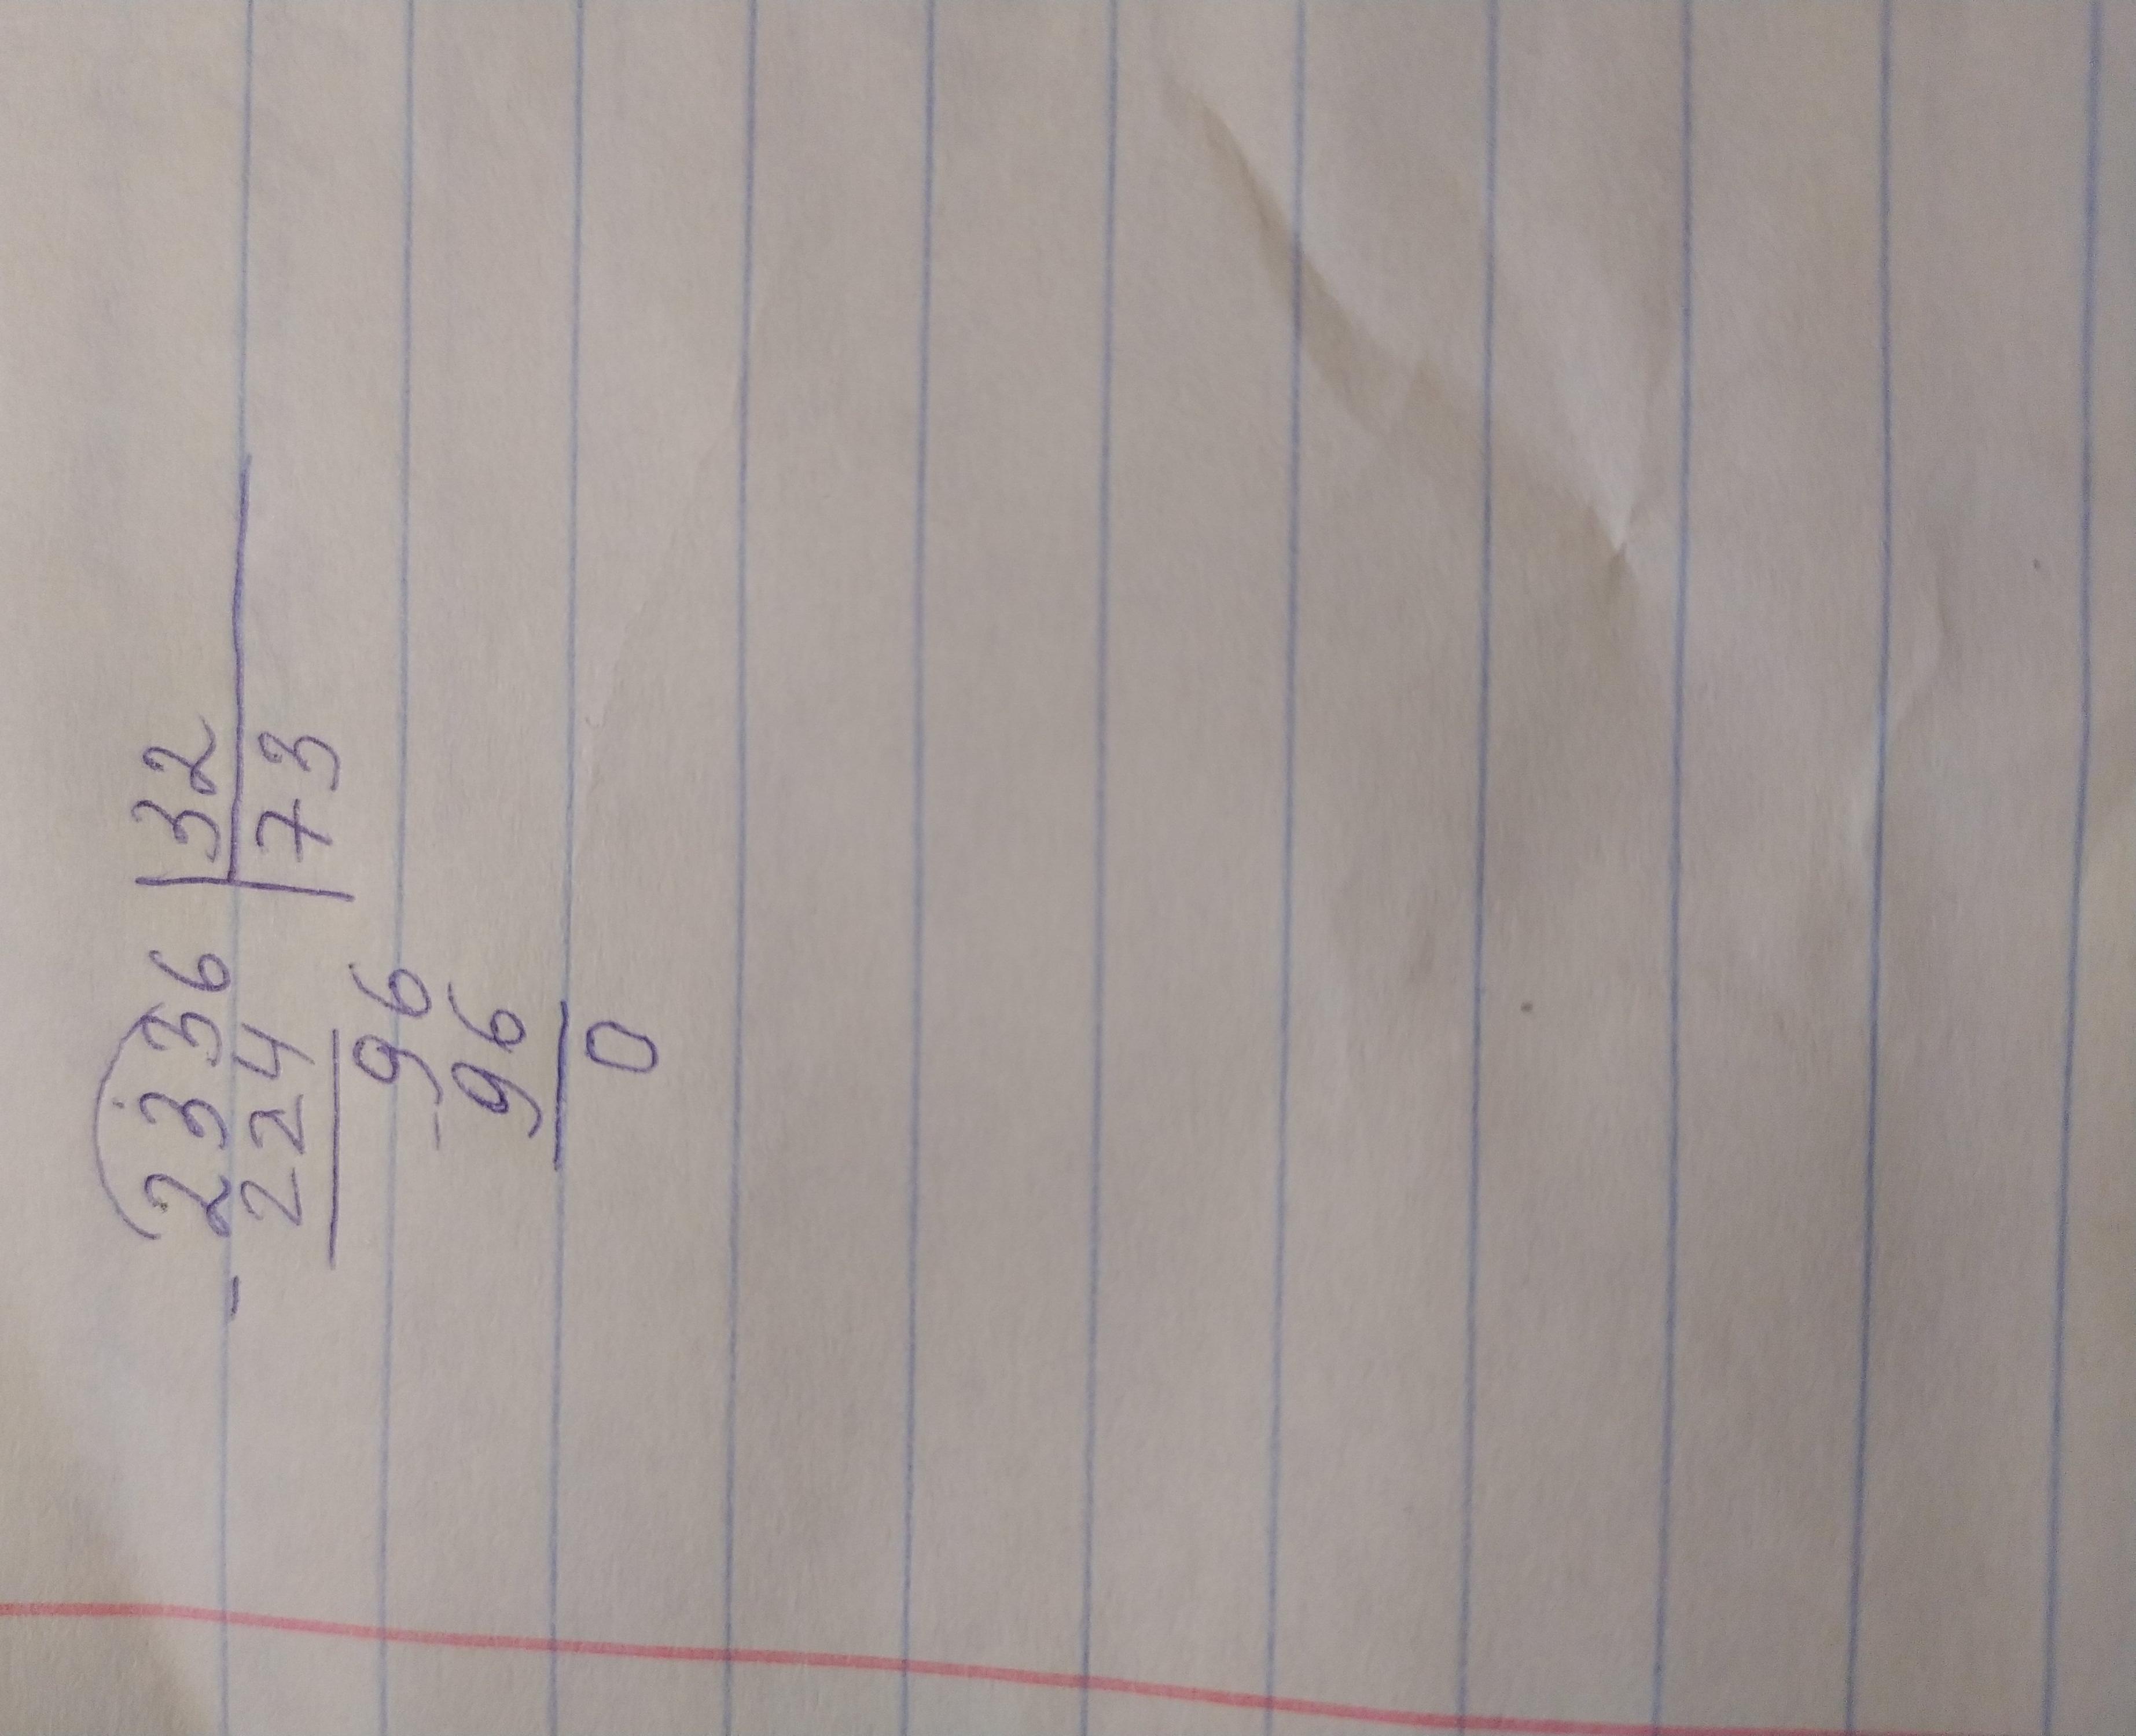 2336 | 32
- 224 | 73
- 96
96
0